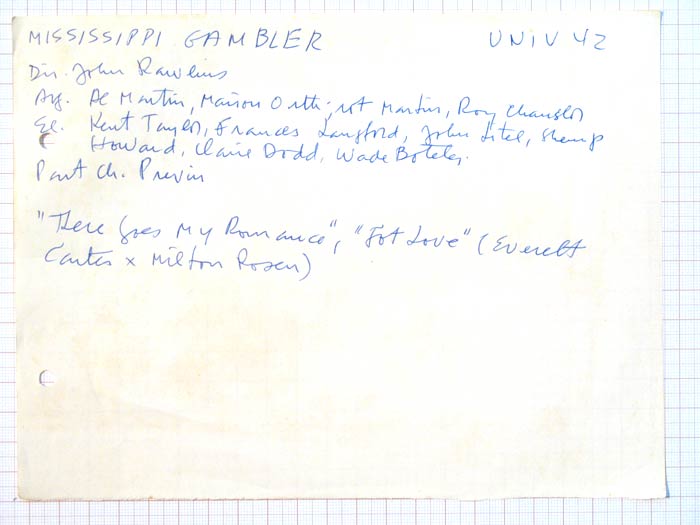 MISSISSIPPI GAMBLER UNIV 42
Dir. John Rawlins
Arg. Al Martin, Marion Orth; rot Martin, Roy Chanslor
El. Kent Taylor, Frances Langford, John Litel, Shemp
Howard, Claire Dodd, Wade Boteler.
Part Ch. Previn
"There Goes My Romance", "Got Love" (Everett
Carter x Milton Rosen)